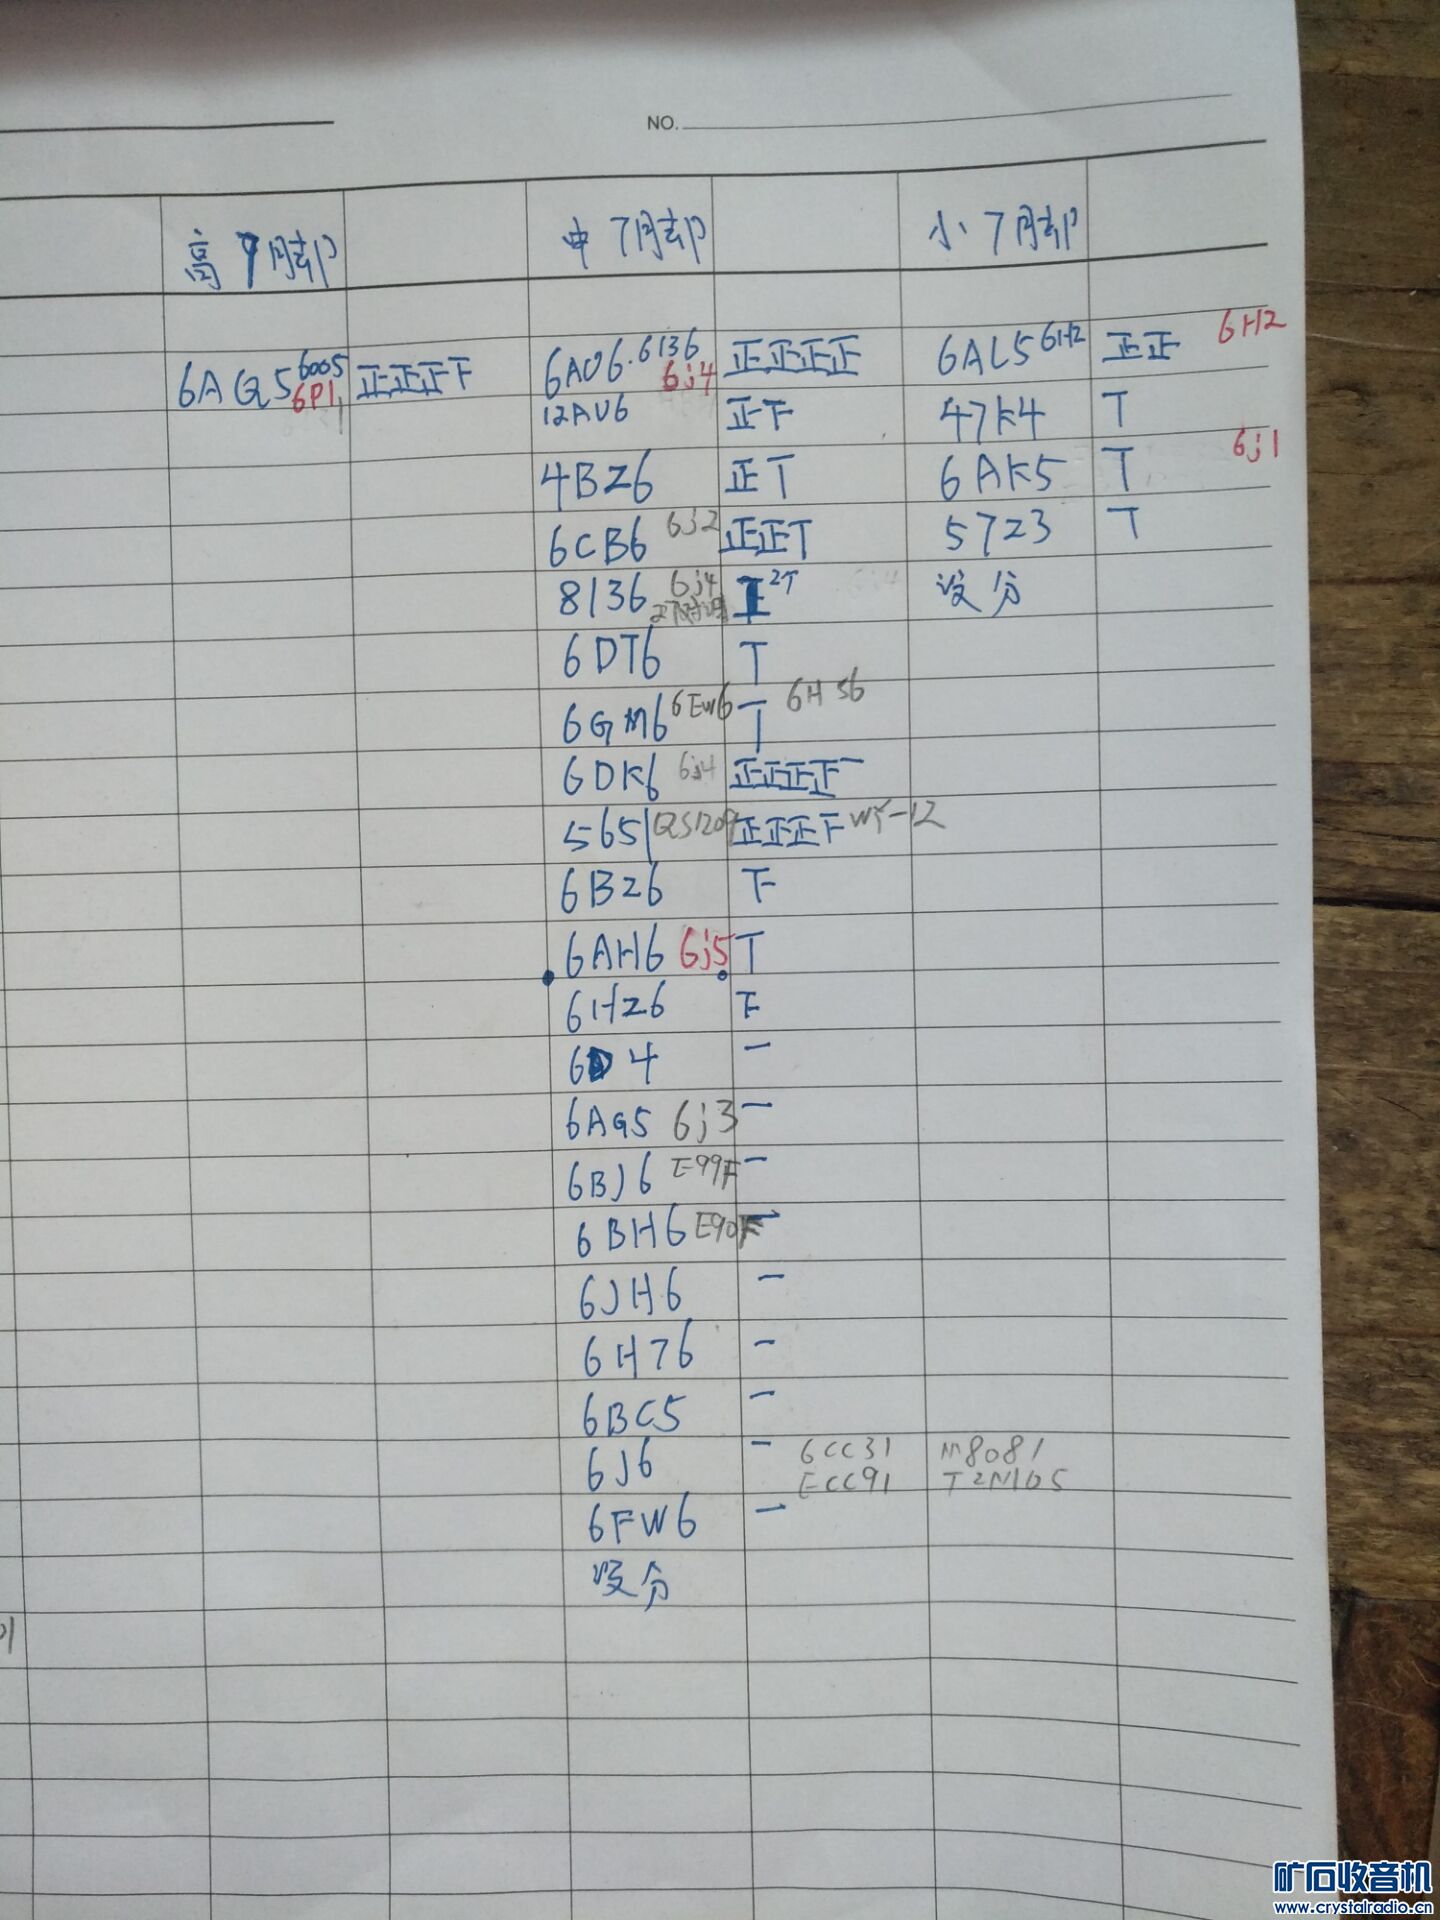 NO.
高7脚 中7脚 小7脚
6AQ5 6005 6P1 正正正下 6AU6.6136 6j4 正正正正 6AL5 6H2 正正 6H2
12AU6 正下 47K4 T
4BZ6 正T 6AK5 T 6j1
6CB6 6j2 正正T 5723 T
8136 6j4 2T 没分
6DT6 T
6GM6 6EW6 T 6HS6
6DK6 6j4 正正正正一
5651 QS1209 正正正下 WY-12
6BZ6 下
6AH6 6j5 T
6HZ6 下
6D4 一
6AG5 6j3 一
6BJ6 E99F 一
6BH6 E90F 一
6JH6 一
6H76 一
6BC5 一
6J6 一 6CC31 M8081
ECC91 T2M105
6FW6 一
没分
矿石收音机
www.crystalradio.cn